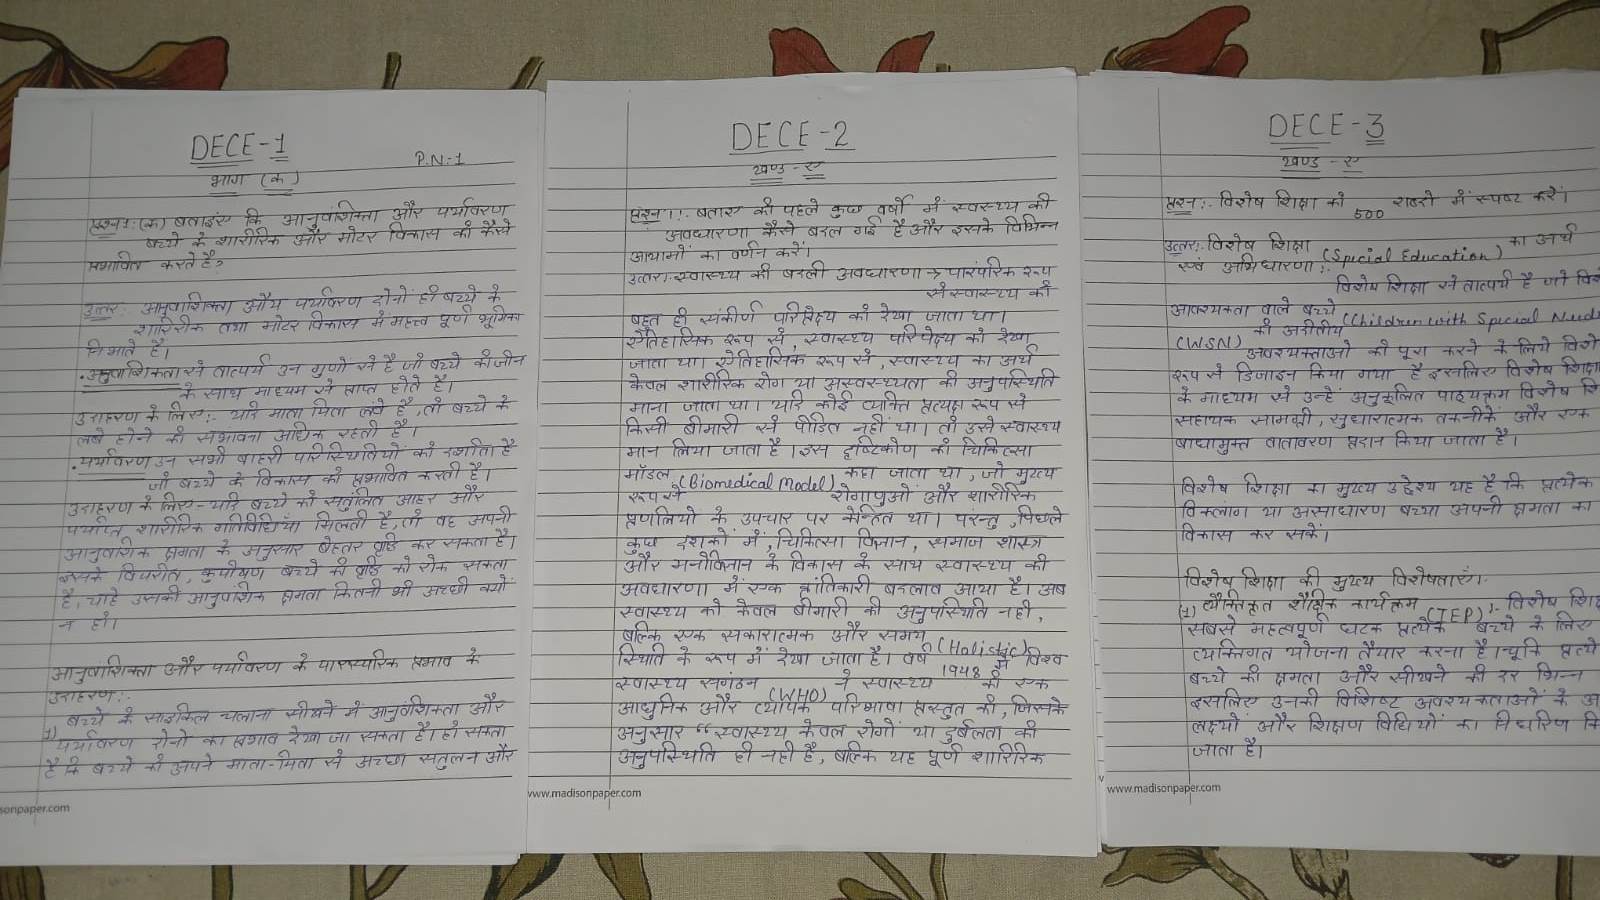 DECE-1
P.N:1
भाग (क)
प्रश्न1:(क) बताइए कि आनुवांशिकता और पर्यावरण
बच्चे के शारीरिक और मोटर विकास को कैसे
प्रभावित करते है?
उत्तर: आनुवांशिकता और पर्यावरण दोनों ही बच्चे के
शारीरिक तथा मोटर विकास में महत्त्व पूर्ण भूमिका
निभाते है।
• आनुवांशिकता से तात्पर्य उन गुणों से है जो बच्चे को जीन
के साथ माध्यम से प्राप्त होते है।
उदाहरण के लिए:- यदि माता पिता लंबे है, तो बच्चे के
लंबे होने की संभावना अधिक रहती है।
• पर्यावरण उन सभी बाहरी परिस्थितियों को दर्शाता है
जो बच्चे के विकास को प्रभावित करती है।
उदाहरण के लिए- यदि बच्चे को संतुलित आहार और
पर्याप्त शारीरिक गतिविधियाँ मिलती है, तो वह अपनी
आनुवांशिक क्षमता के अनुसार बेहतर वृद्धि कर सकता है।
इसके विपरीत, कुपोषण बच्चे की वृद्धि को रोक सकता
है, चाहे उसकी आनुवांशिक क्षमता कितनी भी अच्छी क्यों
न हो।
आनुवांशिकता और पर्यावरण के पारस्परिक प्रभाव के
उदाहरण:-
1) बच्चे के साइकिल चलाना सीखने में आनुवंशिकता और
पर्यावरण दोनों का प्रभाव देखा जा सकता है। हो सकता
है कि बच्चे को अपने माता-पिता से अच्छा संतुलन और
sonpaper.com
DECE-2
खण्ड-ए
प्रश्न1:- बताए की पहले कुछ वर्षो में स्वस्थ्य की
अवधारणा कैसे बदल गई है और इसके विभिन्न
आयामों का वर्णन करें।
उत्तर:- स्वास्थ्य की बदली अवधारणा → पारंपरिक रूप
से स्वास्थ्य को
बहुत ही संकीर्ण परिप्रेक्ष्य को देखा जाता था।
ऐतिहासिक रूप से, स्वास्थ्य परिपेक्ष्य को देखा
जाता था। ऐतिहासिक रूप से, स्वास्थ्य का अर्थ
केवल शारीरिक रोग या अस्वस्थ्यता की अनुपस्थिति
माना जाता था। यदि कोई व्यक्ति प्रत्यक्ष रूप से
किसी बीमारी से पीड़ित नहीं था। तो उसे स्वास्थ्य
मान लिया जाता है। इस दृष्टिकोण को चिकित्सा
मॉडल (Biomedical Model) कहा जाता था, जो मुख्य
रूप से रोगाणुओं और शारीरिक
प्रणलियो के उपचार पर केन्द्रित था। परंन्तु, पिछले
कुछ दशकों में, चिकित्सा विज्ञान, समाज शास्त्र
और मनोविज्ञान के विकास के साथ स्वास्थ्य की
अवधारणा में एक क्रांतिकारी बदलाव आया है। अब
स्वास्थ्य को केवल बीमारी की अनुपस्थिति नही,
बल्कि एक सकारात्मक और समग्र (Holistic)
स्थिति के रूप में देखा जाता है। वर्ष 1948 में विश्व
स्वास्थ्य संगठन (WHO) ने स्वास्थ्य की एक
आधुनिक और व्यापक परिभाषा प्रस्तुत की, जिसके
अनुसार “स्वास्थ्य केवल रोगों या दुर्बलता की
अनुपस्थिति ही नही है, बल्कि यह पूर्ण शारीरिक
www.madisonpaper.com
DECE-3
खण्ड-ए
प्रश्न:- विशेष शिक्षा को 500 शब्दो में स्पष्ट करें।
उत्तर:- विशेष शिक्षा (Special Education) का अर्थ
एवं अभिधारणा:-
विशेष शिक्षा से तात्पर्य है जो
आवश्यकता वाले बच्चे (Children with Special Need
(WSN) की अद्वीतीय
अवश्यकताओ को पूरा करने के लिये
रूप से डिजाइन किया गया है इसलिए विशेष शिक्षा
के माध्यम से उन्हें अनुकूलित पाठ्यक्रम विशेष
सहायक सामग्री, सुधारात्मक तकनीकें और एक
बाधामुक्त वातावरण प्रदान किया जाता है।
विशेष शिक्षा का मुख्य उद्देश्य यह है कि प्रत्येक
विकलांग या असाधारण बच्चा अपनी क्षमता का
विकास कर सकें।
विशेष शिक्षा की मुख्य विशेषताएँ:-
(1) व्यैक्तिकृत शैक्षिक कार्यक्रम (IEP):- विशेष
सबसे महत्वपूर्ण घटक प्रत्येक बच्चे के लिए
व्यक्तिगत योजना तैयार करना है। चूकि
बच्चे की क्षमता और सीखने की दर भिन्न
इसलिए उनकी विशिष्ट अवश्यकताओं के
लक्ष्यों और शिक्षण विधियों का निर्धारण
जाता है।
www.madisonpaper.com